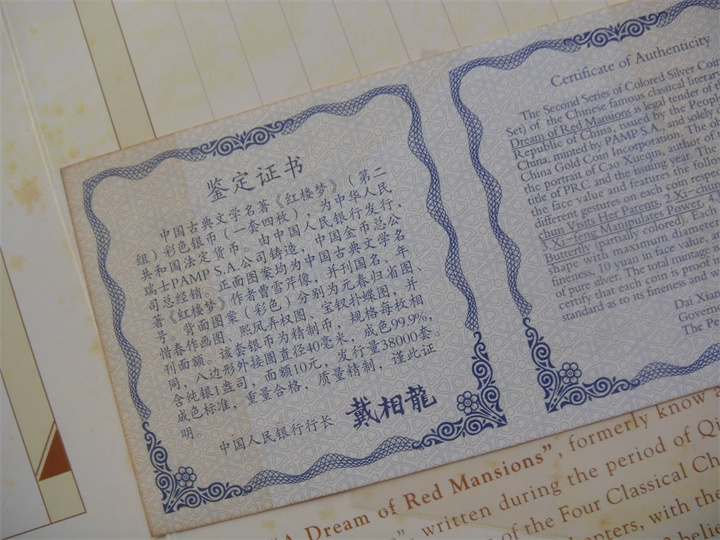 鉴定证书
中国古典文学名著《红楼梦》（第二
组）彩色银币（一套四枚），为中华人民
共和国法定货币。由中国人民银行发行，
瑞士PAMP S.A.公司铸造，中国金币总公
司总经销。正面图案均为中国古典文学名
著《红楼梦》作者曹雪芹像，并刊国名、年
号。背面图案（彩色）分别为元春归省图、
惜春作画图、熙凤弄权图、宝钗扑蝶图，并
刊面额。该套银币为精制币，规格每枚相
同，八边形外接圆直径40毫米，成色99.9%，
含纯银1盎司，面额10元，发行量38000套。
成色标准，重量合格，质量精制，谨此证
明。
中国人民银行行长 戴相龍
Certificate of Authenticity
The Second Series of Colored Silver Coin
Set) of the Chinese famous classical literar
Dream of Red Mansions is legal tender of
Republic of China, issued by the Peop
China, minted by PAMP S.A., and solely
China Gold Coin Incorporation. The
the portrait of Cao Xueqin, author of
title of P.R.C and the issuing year. The
the face value and features the follow
different gestures on each coin respec
chun Visits Her Parents, 2.Xi-chu
3.Xi-feng Manipulates Power, 4.
Butterfly (partially colored). Each
shape with maximum diameter
fineness, 10 yuan in face value, a
of pure silver. The total mintage
certify that each coin is proof
standard as to its fineness and w
Dai Xian
Governo
The Pe
"A Dream of Red Mansions", formerly know
", written during the period of Qi
of the Four Classical Ch
hapters, with the
belie